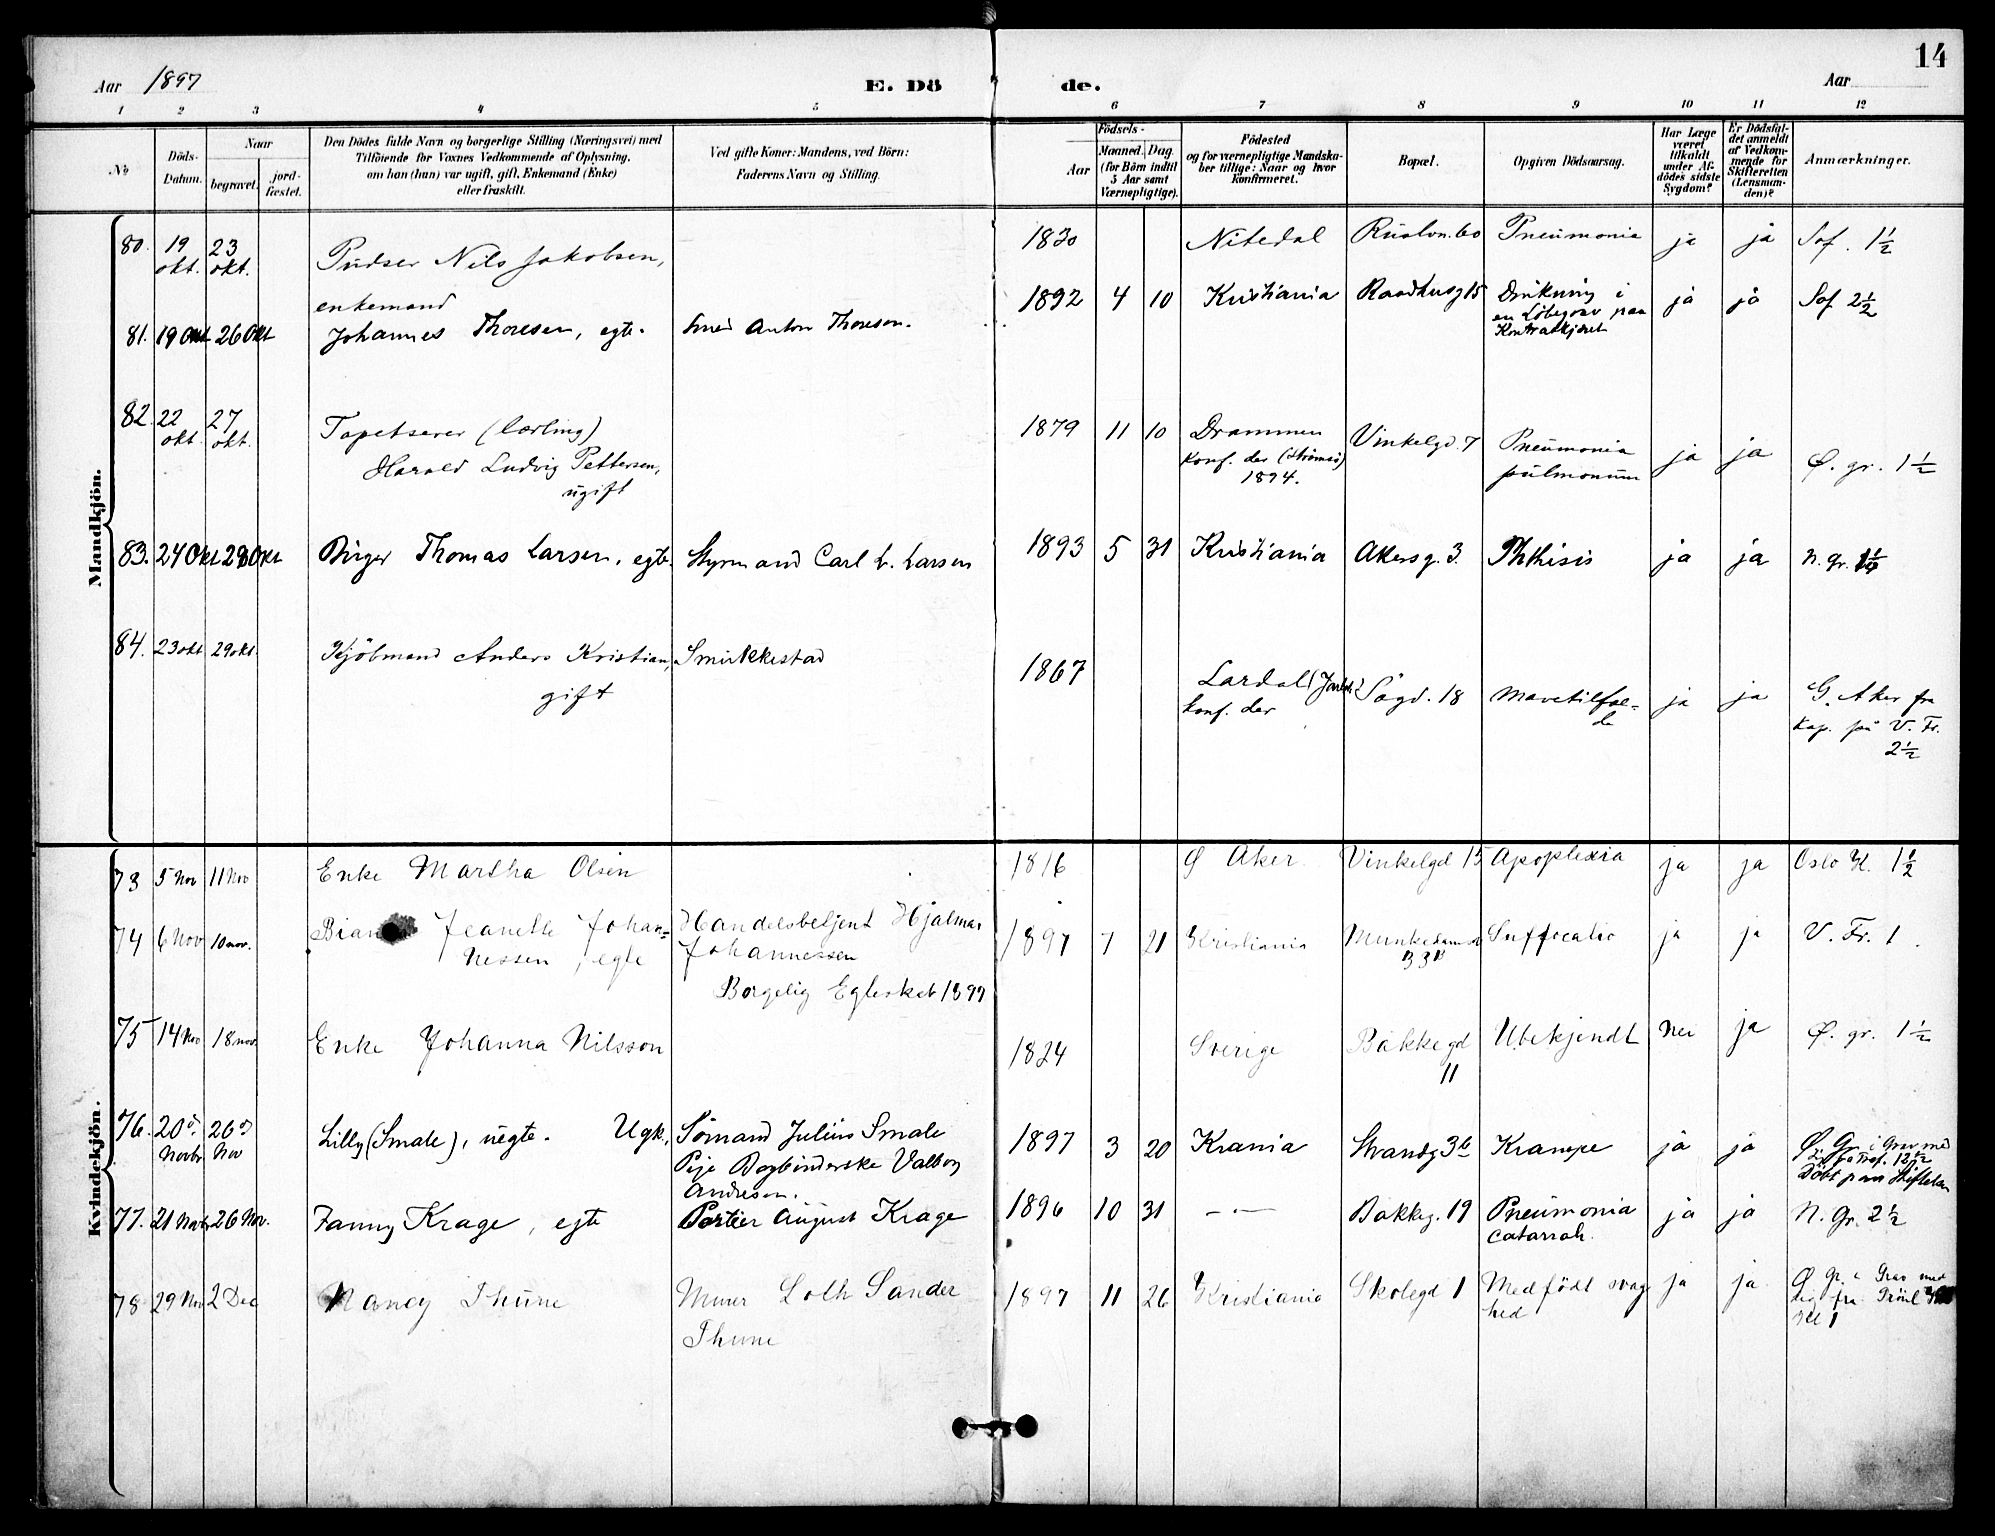 14
Aar 1897
E. Dö de.
Aar
1 2 3 4 5 6 7 8 9 10 11 12
No
Döds-Datum.
Naar
begravet.
jord-fæstet.
Den Dödes fulde Navn og borgerlige Stilling (Næringsvei) med
Tilföiende for Voxnes Vedkommende af Oplysning,
om han (hun) var ugift, gift, Enkemand (Enke)
eller fraskilt.
Ved gifte Koner: Mandens, ved Börn:
Faderens Navn og Stilling.
Födsels-
Aar
Maaned. Dag.
(for Börn indtil
5 Aar samt
Værnepligtige).
Födested
og for værnepligtige Mandska-
ber tillige: Naar og hvor
konfirmeret.
Bopæl.
Opgiven Dödsaarsag.
Har Læge
været
tilkaldt
under Af-
dödes sidste
Sygdom?
Er Dödsfal-
det anmeldt
af Vedkom-
mende for
Skifteretten
(Lensman-
den)?
Anmærkninger.
Mandkjön.
80. 19 okt. 23 okt. Pudser Nils Jakobsen,
enkemand
1830 Nitedal 60 Pneumonia ja ja Sof. 1½
81. 19 Okt 26 Okt Johannes Thoresen, egte. Smed Anton Thoresen.
1892 4 10 Kristiania Raadhusg 15 Drukning i
en paa
ja ja Sof 2½
82. 22 okt. 27 okt. Tapetserer (Lærling)
Harald Ludvig Pettersen,
ugift
1879 11 10 Drammen
Konf. der (Strömsö)
1894.
Vinkelgd. 7 Pneumonia
pulmonum
ja ja Ø. gr. 1½
83. 24 Okt 28 Okt Birger Thomas Larsen, egte. Styrmand Carl L. Larsen
1893 5 31 Kristiania Akersg. 3. Phthisis ja ja N. gr.
84. 23 okt 29 okt. Kjöbmand Anders Kristian, Smukkestad
gift
1867 Lardal (Jarlsb.)
Konf. der
18 Mavetilfæl-
de
ja ja G. Aker fra
Kap. på V. Fr.
2½
Kvindekjön.
73 5 Nov 11 Nov Enke Martha Olsen
1816 Ø Aker Vinkelgd 15 Apoplexia ja ja Oslo H. 1½
74 6 Nov 10 nov. Jeanette Johan-
nessen, egte
Handelsbetjent Hjalmar
Johannessen
Borgelig Egteskab
1897 7 21 Kristiania
Suffocatio ja ja V. Fr. 1
75 14 Nov 18 nov. Enke Johanna Nilsson
1824 Sverige Bakkegd
11
Ubekjendt Nei ja Ø. gr. 1½
76. 20 Novbr 26 Nov Lilly (Smale), uegte. Ugk. Sömand Julius Smale
Pige Bogbinderske Valborg
Andresen.
1897 3 20 Krania Strandg Krampe ja ja Ø Gr. i Grav med
77. 21 Novbr 26 Nov. Fanny Krage, egte Portier August Krage
1896 10 31 — — Bakkeg. 19 Pneumonia
Catarrah.
ja ja N. Gr. 2½
78 29 Nov 2 Dec Nancy Thune Murer Loth Sander
Thune
1897 11 26 Kristiania Skolegd 1 Medfödt svag
hed
ja ja Ø Gr. i Grav med